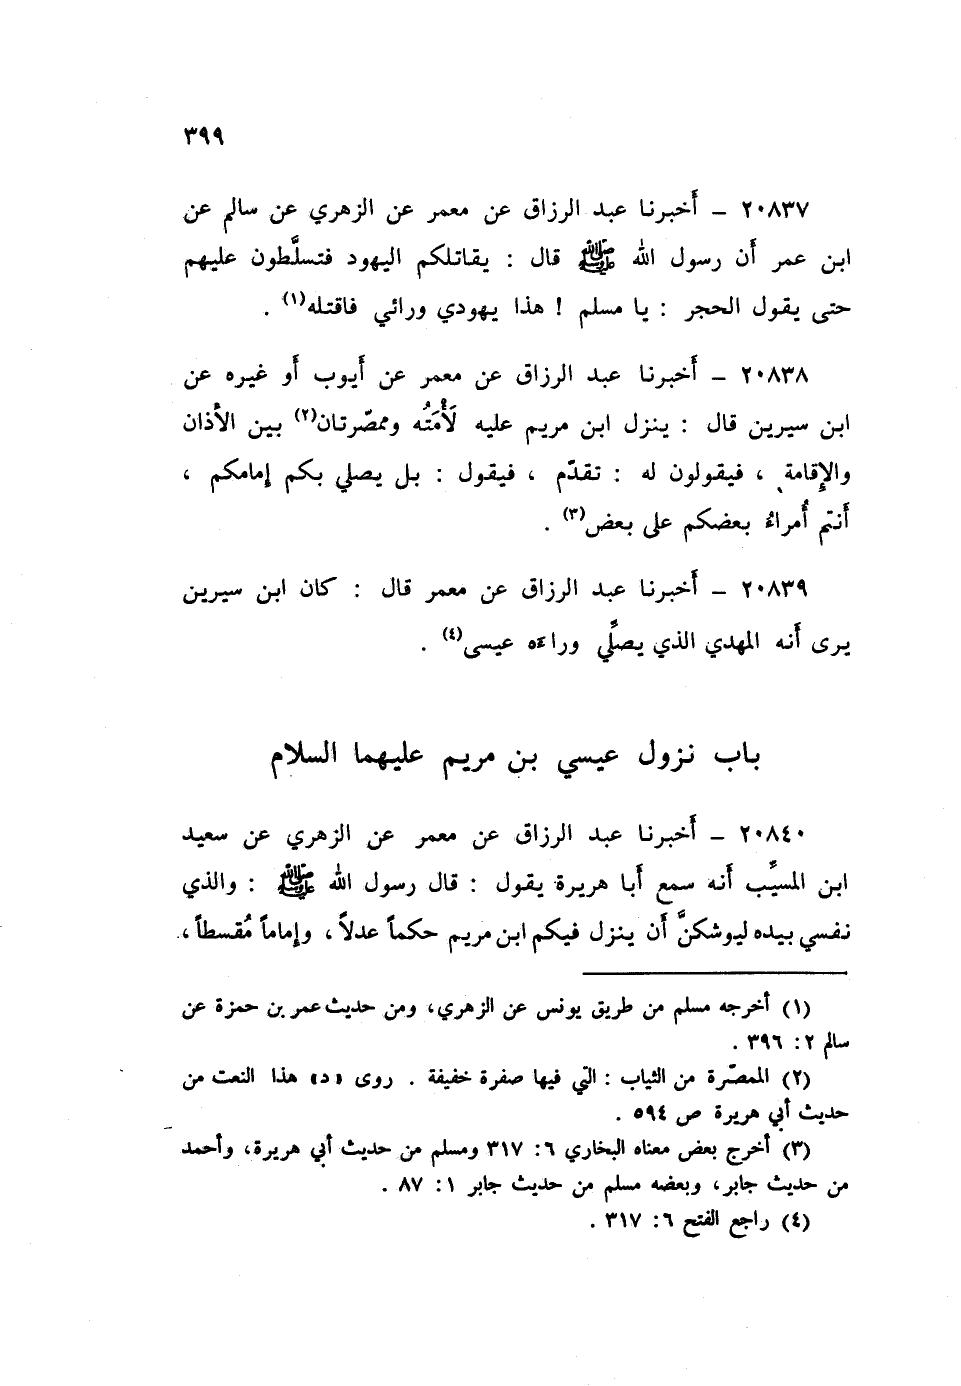 ٣٩٩
٢٠٨٣٧ – أَخبرنا عبد الرزاق عن معمر عن الزهري عن سالم عن
ابن عمر أَن رسول الله ﷺ قال : يقاتلكم اليهود فتسلَّطون عليهم
حتى يقول الحجر : يا مسلم ! هذا يهودي ورائي فاقتله(١) .
٢٠٨٣٨ – أَخبرنا عبد الرزاق عن معمر عن أَيوب أَو غيره عن
ابن سيرين قال : ينزل ابن مريم عليه لَأْمَتُه وممصّرتان(٢) بين الأَذان
والإِقامة ، فيقولون له : تقدّم ، فيقول : بل يصلي بكم إمامكم ،
أَنتم أُمراءُ بعضكم على بعض(٣) .
٢٠٨٣٩ – أَخبرنا عبد الرزاق عن معمر قال : كان ابن سيرين
يرى أَنه المهدي الذي يصلَّي وراءه عيسى(٤) .
باب نزول عيسي بن مريم عليهما السلام
٢٠٨٤٠ – أَخبرنا عبد الرزاق عن معمر عن الزهري عن سعيد
ابن المسيَّب أَنه سمع أَبا هريرة يقول : قال رسول الله ﷺ : والذي
نفسي بيده ليوشكنَّ أَن ينزل فيكم ابن مريم حكماً عدلاً ، وإماماً مُقسطاً ،
(١) أخرجه مسلم من طريق يونس عن الزهري، ومن حديث عمر بن حمزة عن
سالم ٢ : ٣٩٦ .
(٢) الممصّرة من الثياب : التي فيها صفرة خفيفة . روى «د» هذا النعت من
حديث أبي هريرة ص ٥٩٤ .
(٣) أخرج بعض معناه البخاري ٦ : ٣١٧ ومسلم من حديث أبي هريرة، وأحمد
من حديث جابر، وبعضه مسلم من حديث جابر ١ : ٨٧ .
(٤) راجع الفتح ٦ : ٣١٧ .